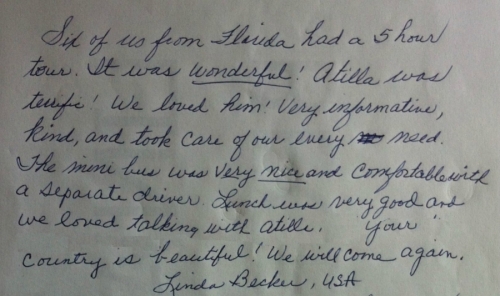 Six of us from Florida had a 5 hour
tour. It was wonderful! Atilla was
terrific! We loved him! Very informative,
kind, and took care of our every need.
The mini bus was very nice and comfortable with
a separate driver. Lunch was very good and
we loved talking with atilla. Your
country is beautiful! We will come again.
Linda Becker, USA